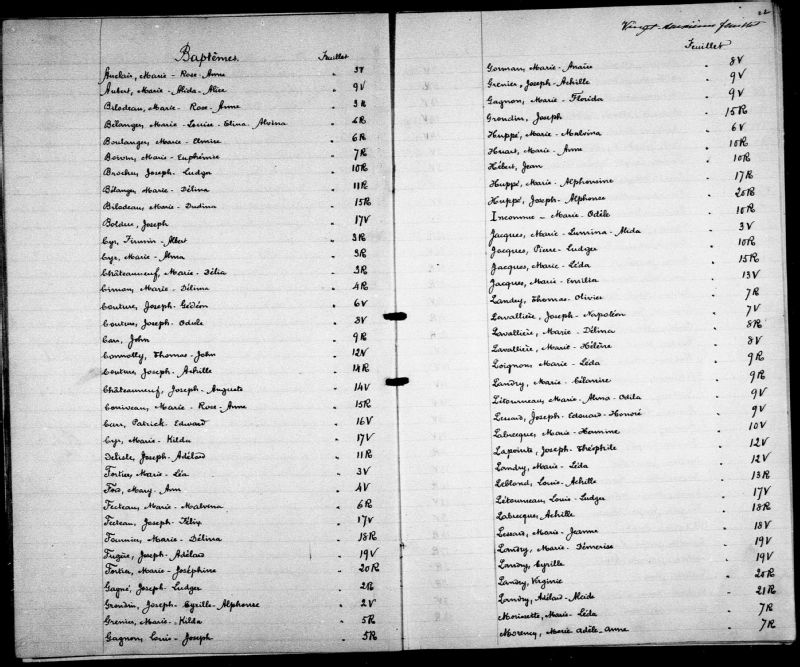 Baptêmes. Feuillet
Auclair, Marie-Rose-Anne " 3V
Aubert, Marie-Alida-Alice " 9V
Bilodeau, Marie-Rose-Anne " 3R
Bélanger, Marie-Louise-Elina-Alvina " 4R
Boulanger, Marie-Elmire " 6R
Boivin, Marie-Euphémie " 7R
Brochu, Joseph-Ludger " 10R
Bélanger, Marie-Délina " 11R
Bilodeau, Marie-Dudina " 15R
Bolduc, Joseph " 17V
Cyr, Firmin-Albert " 3R
Cyr, Marie-Alma " 3R
Châteauneuf, Marie-Délia " 3R
Cimon, Marie-Délima " 4R
Couture, Joseph-Gédéon " 6V
Couture, Joseph-Odule " 8V
Carr, John " 9R
Connolly, Thomas-John " 12V
Couture, Joseph-Achille " 14R
Châteauneuf, Joseph-Auguste " 14V
Coriveau, Marie-Rose-Anne " 15R
Carr, Patrick-Edward " 16V
Cyr, Marie-Kilda " 17V
Delisle, Joseph-Adélard " 11R
Fortier, Marie-Léa " 3V
Fox, Mary-Ann " 4V
Fecteau, Marie-Malvina " 6R
Fecteau, Joseph-Félix " 17V
Fournier, Marie-Délima " 18R
Fugère, Joseph-Adélard " 19V
Fortier, Marie-Joséphine " 20R
Gagné, Joseph-Ludger " 2R
Grondin, Joseph-Cyrille-Alphonse " 2V
Grenier, Marie-Kilda " 5R
Gagnon, Louis-Joseph " 5R
22
Vingt-deuxième feuillet
Feuillet
Gorman, Marie-Anaïse " 8V
Grenier, Joseph-Achille " 9V
Gagnon, Marie-Florida " 9V
Grondin, Joseph " 15R
Huppé, Marie-Malvina " 6V
Huart, Marie-Anne " 10R
Hébert, Jean " 10R
Huppé, Marie-Alphonsine " 17R
Huppé, Joseph-Alphonse " 20R
Inconnue - Marie-Odèle " 10R
Jacques, Marie-Lumina-Alida " 3V
Jacques, Pierre-Ludger " 10R
Jacques, Marie-Léda " 15R
Jacques, Marie-Emilia " 13V
Landry, Thomas-Olivier " 7R
Lavallière, Joseph-Napoléon " 7V
Lavallière, Marie-Délima " 8R
Lavallière, Marie-Hélène " 8V
Loignon, Marie-Léda " 9R
Landry, Marie-Célanire " 9R
Létourneau, Marie-Alma-Odila " 9V
Lessard, Joseph-Edouard-Honoré " 9V
Labrecque, Marie-Hermine " 10V
Lapointe, Joseph-Théophile " 12V
Landry, Marie-Léda " 12V
Leblond, Louis-Achille " 13R
Létourneau, Louis-Ludger " 17V
Labrecque, Achille " 18R
Lessard, Marie-Jeanne " 18V
Landry, Marie-Démerise " 19V
Landry, Cyrille " 19V
Landry, Virginie " 20R
Landry, Adélard-Alcide " 21R
Morissette, Marie-Léda " 7R
Morency, Marie-Adèle-Anne " 7R